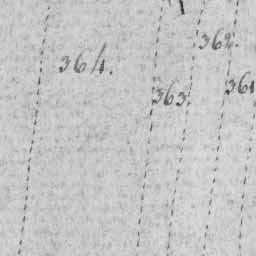 362.
364.
363.
361